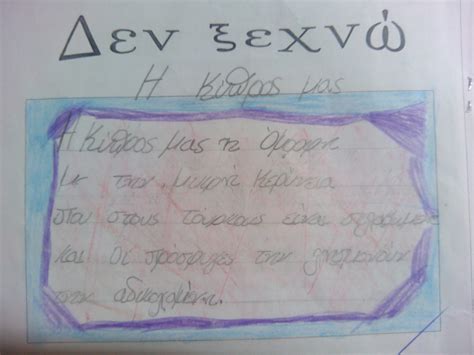 Δεν ξεχνώ
Η Κύπρος μας
Η Κύπρος μας τη όμορφη
Με την μικρή Κερύνεια
Που στους τούρκους είναι
και οι πρόσφυγες την
την